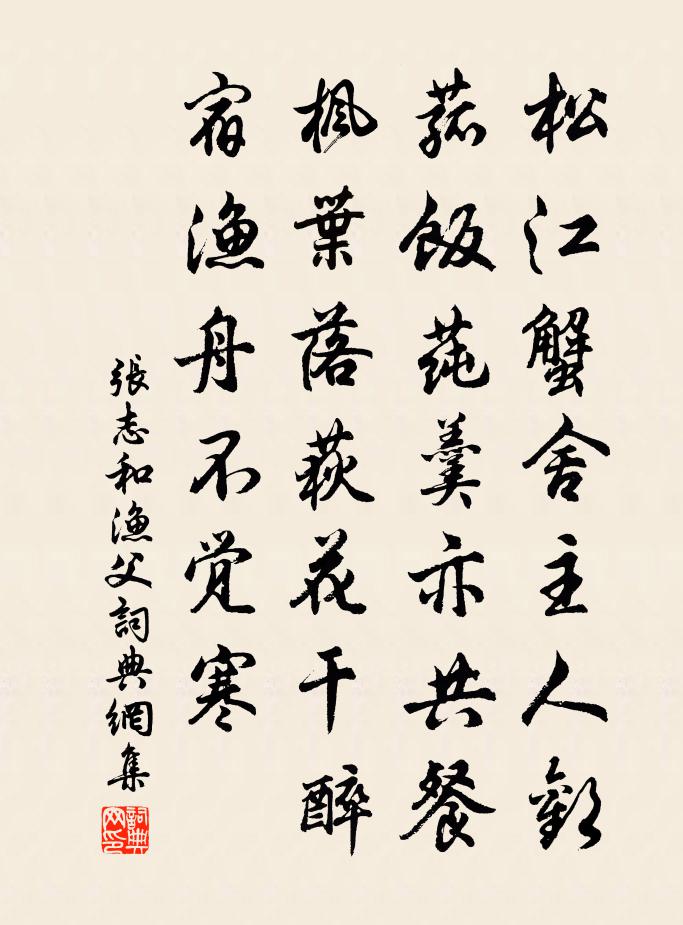 松江蟹舍主人歡
菰飯莼羹亦共餐
楓葉落荻花干醉
宿漁舟不覺寒
張志和漁父詞典網集
詞典网印